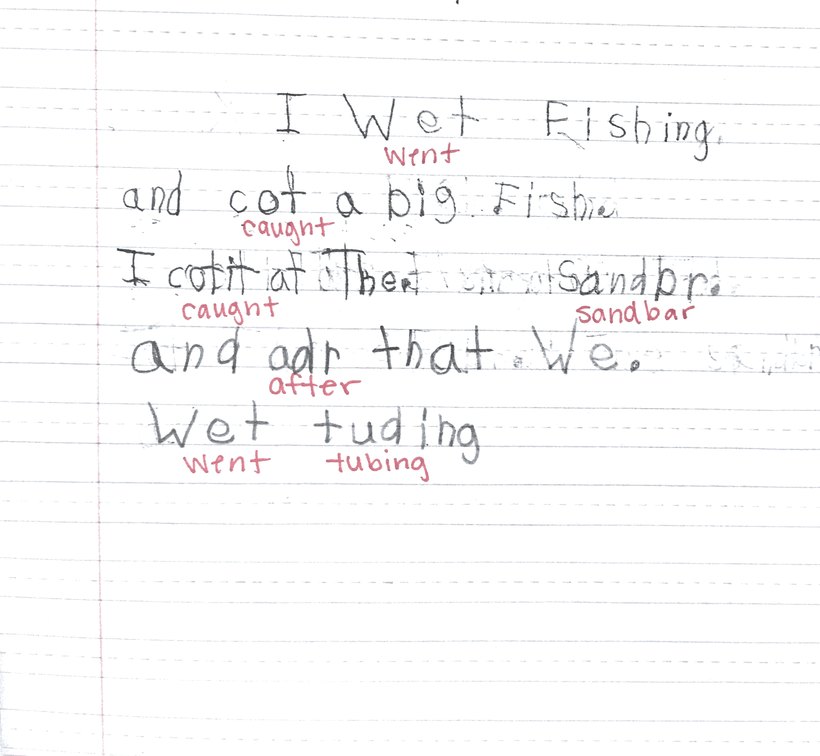 I Wet Fishing.
went
and cot a big Fish.
caught
I cotit at The Sandbr.
caught sandbar
and adr that. We.
after
Wet tuding
went tubing